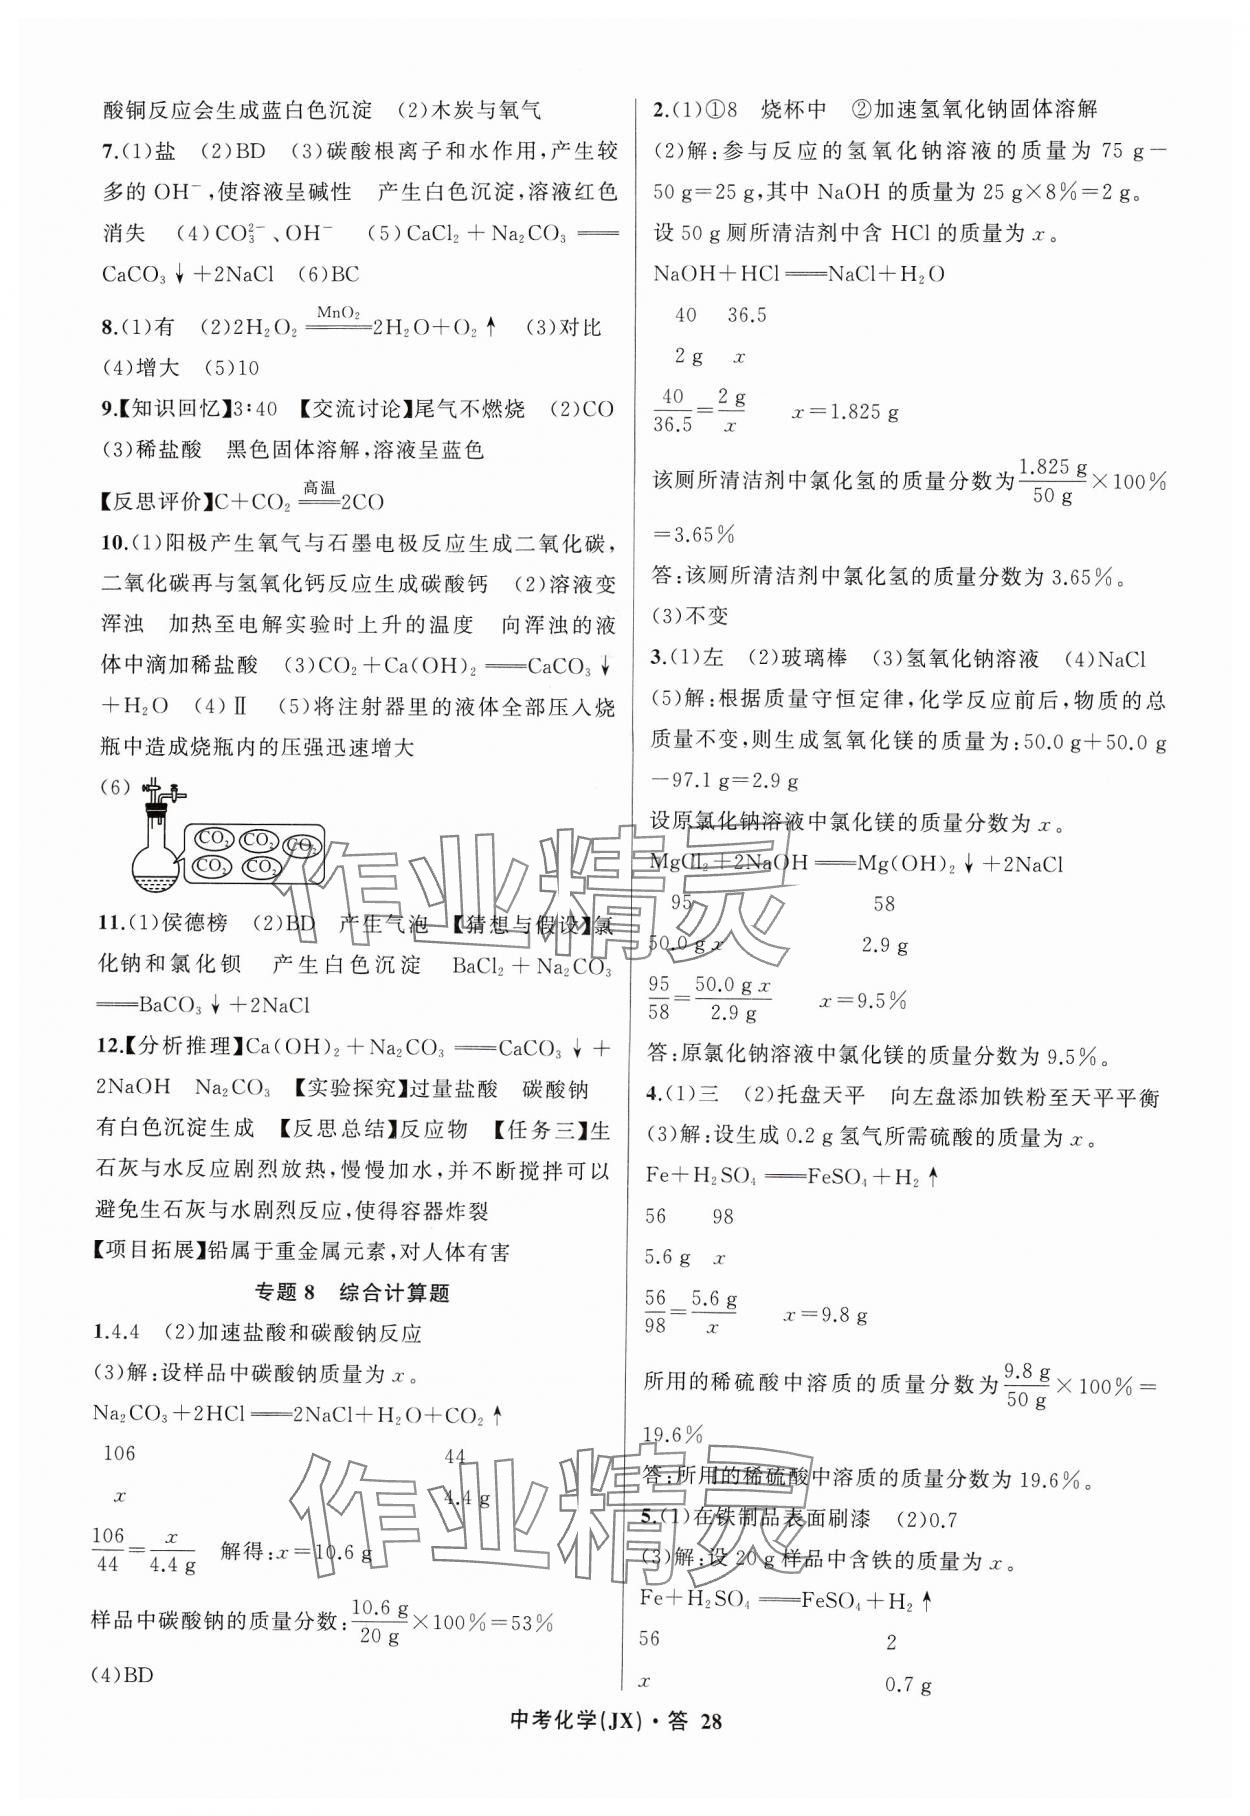 酸铜反应会生成蓝白色沉淀 (2)木炭与氧气
7.(1)盐 (2)BD (3)碳酸根离子和水作用,产生较
多的 OH⁻,使溶液呈碱性 产生白色沉淀,溶液红色
消失 (4)CO₃²⁻、OH⁻ (5)CaCl₂+Na₂CO₃══
CaCO₃↓+2NaCl (6)BC
8.(1)有 (2)2H₂O₂ ══MnO₂══ 2H₂O+O₂↑ (3)对比
(4)增大 (5)10
9.【知识回忆】3∶40 【交流讨论】尾气不燃烧 (2)CO
(3)稀盐酸 黑色固体溶解,溶液呈蓝色
【反思评价】C+CO₂ ══高温══ 2CO
10.(1)阳极产生氧气与石墨电极反应生成二氧化碳,
二氧化碳再与氢氧化钙反应生成碳酸钙 (2)溶液变
浑浊 加热至电解实验时上升的温度 向浑浊的液
体中滴加稀盐酸 (3)CO₂+Ca(OH)₂══CaCO₃↓
+H₂O (4)Ⅱ (5)将注射器里的液体全部压入烧
瓶中造成烧瓶内的压强迅速增大
(6)
CO₂ CO₂ CO₂
CO₂ CO₂
11.(1)侯德榜 (2)BD 产生气泡 【猜想与假设】氯
化钠和氯化钡 产生白色沉淀 BaCl₂+Na₂CO₃
══BaCO₃↓+2NaCl
12.【分析推理】Ca(OH)₂+Na₂CO₃══CaCO₃↓+
2NaOH Na₂CO₃ 【实验探究】过量盐酸 碳酸钠
有白色沉淀生成 【反思总结】反应物 【任务三】生
石灰与水反应剧烈放热,慢慢加水,并不断搅拌可以
避免生石灰与水剧烈反应,使得容器炸裂
【项目拓展】铅属于重金属元素,对人体有害
专题 8 综合计算题
1.4.4 (2)加速盐酸和碳酸钠反应
(3)解:设样品中碳酸钠质量为 x。
Na₂CO₃+2HCl══2NaCl+H₂O+CO₂↑
106 44
x 4.4 g
106/44=x/4.4 g 解得:x=10.6 g
样品中碳酸钠的质量分数:10.6 g/20 g×100%=53%
(4)BD
2.(1)①8 烧杯中 ②加速氢氧化钠固体溶解
(2)解:参与反应的氢氧化钠溶液的质量为 75 g-
50 g=25 g,其中 NaOH 的质量为 25 g×8%=2 g。
设 50 g 厕所清洁剂中含 HCl 的质量为 x。
NaOH+HCl══NaCl+H₂O
40 36.5
2 g x
40/36.5=2 g/x x=1.825 g
该厕所清洁剂中氯化氢的质量分数为1.825 g/50 g×100%
=3.65%
答:该厕所清洁剂中氯化氢的质量分数为 3.65%。
(3)不变
3.(1)左 (2)玻璃棒 (3)氢氧化钠溶液 (4)NaCl
(5)解:根据质量守恒定律,化学反应前后,物质的总
质量不变,则生成氢氧化镁的质量为:50.0 g+50.0 g
-97.1 g=2.9 g
设原氯化钠溶液中氯化镁的质量分数为 x。
MgCl₂+2NaOH══Mg(OH)₂↓+2NaCl
95 58
50.0 g x 2.9 g
95/58=50.0 g x/2.9 g x=9.5%
答:原氯化钠溶液中氯化镁的质量分数为 9.5%。
4.(1)三 (2)托盘天平 向左盘添加铁粉至天平平衡
(3)解:设生成 0.2 g 氢气所需硫酸的质量为 x。
Fe+H₂SO₄══FeSO₄+H₂↑
56 98
5.6 g x
56/98=5.6 g/x x=9.8 g
所用的稀硫酸中溶质的质量分数为9.8 g/50 g×100%=
19.6%
答:所用的稀硫酸中溶质的质量分数为 19.6%。
5.(1)在铁制品表面刷漆 (2)0.7
(3)解:设 20 g 样品中含铁的质量为 x。
Fe+H₂SO₄══FeSO₄+H₂↑
56 2
x 0.7 g
中考化学(JX)·答 28
作业精灵
作业精灵